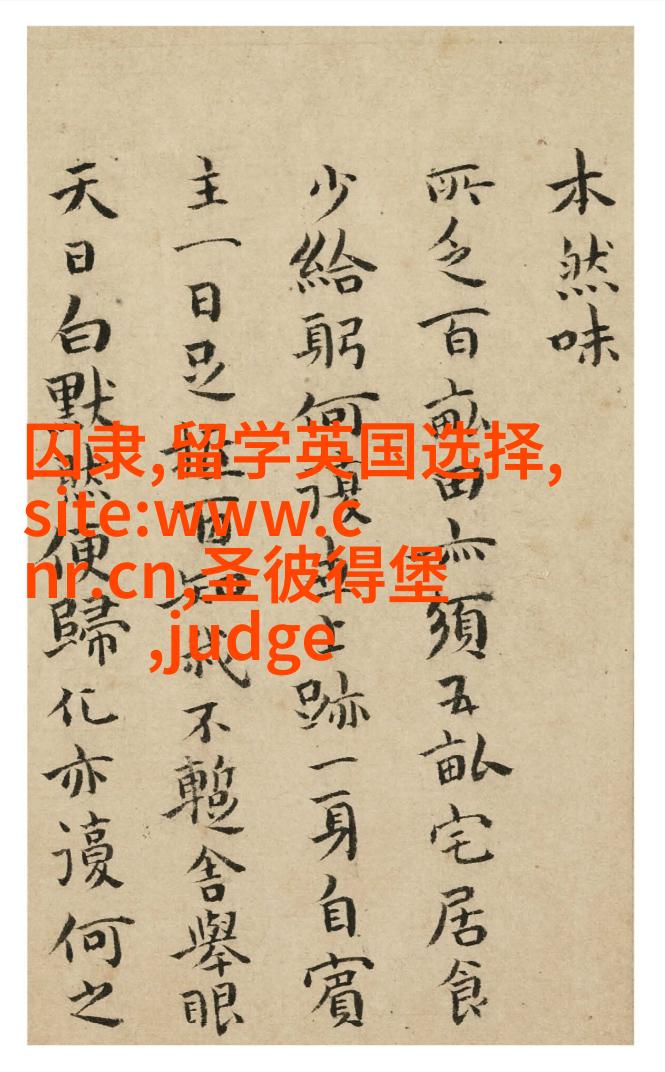 本然味
所乏百畝田亦須五畝宅居食
少給躬何復上跡一身自賓
主一日足百哉不暫舍舉眼
天日白默然便歸化亦復何之
囚隶,留学英国选择,
site:www.c
nr.cn,圣彼得堡
,judge